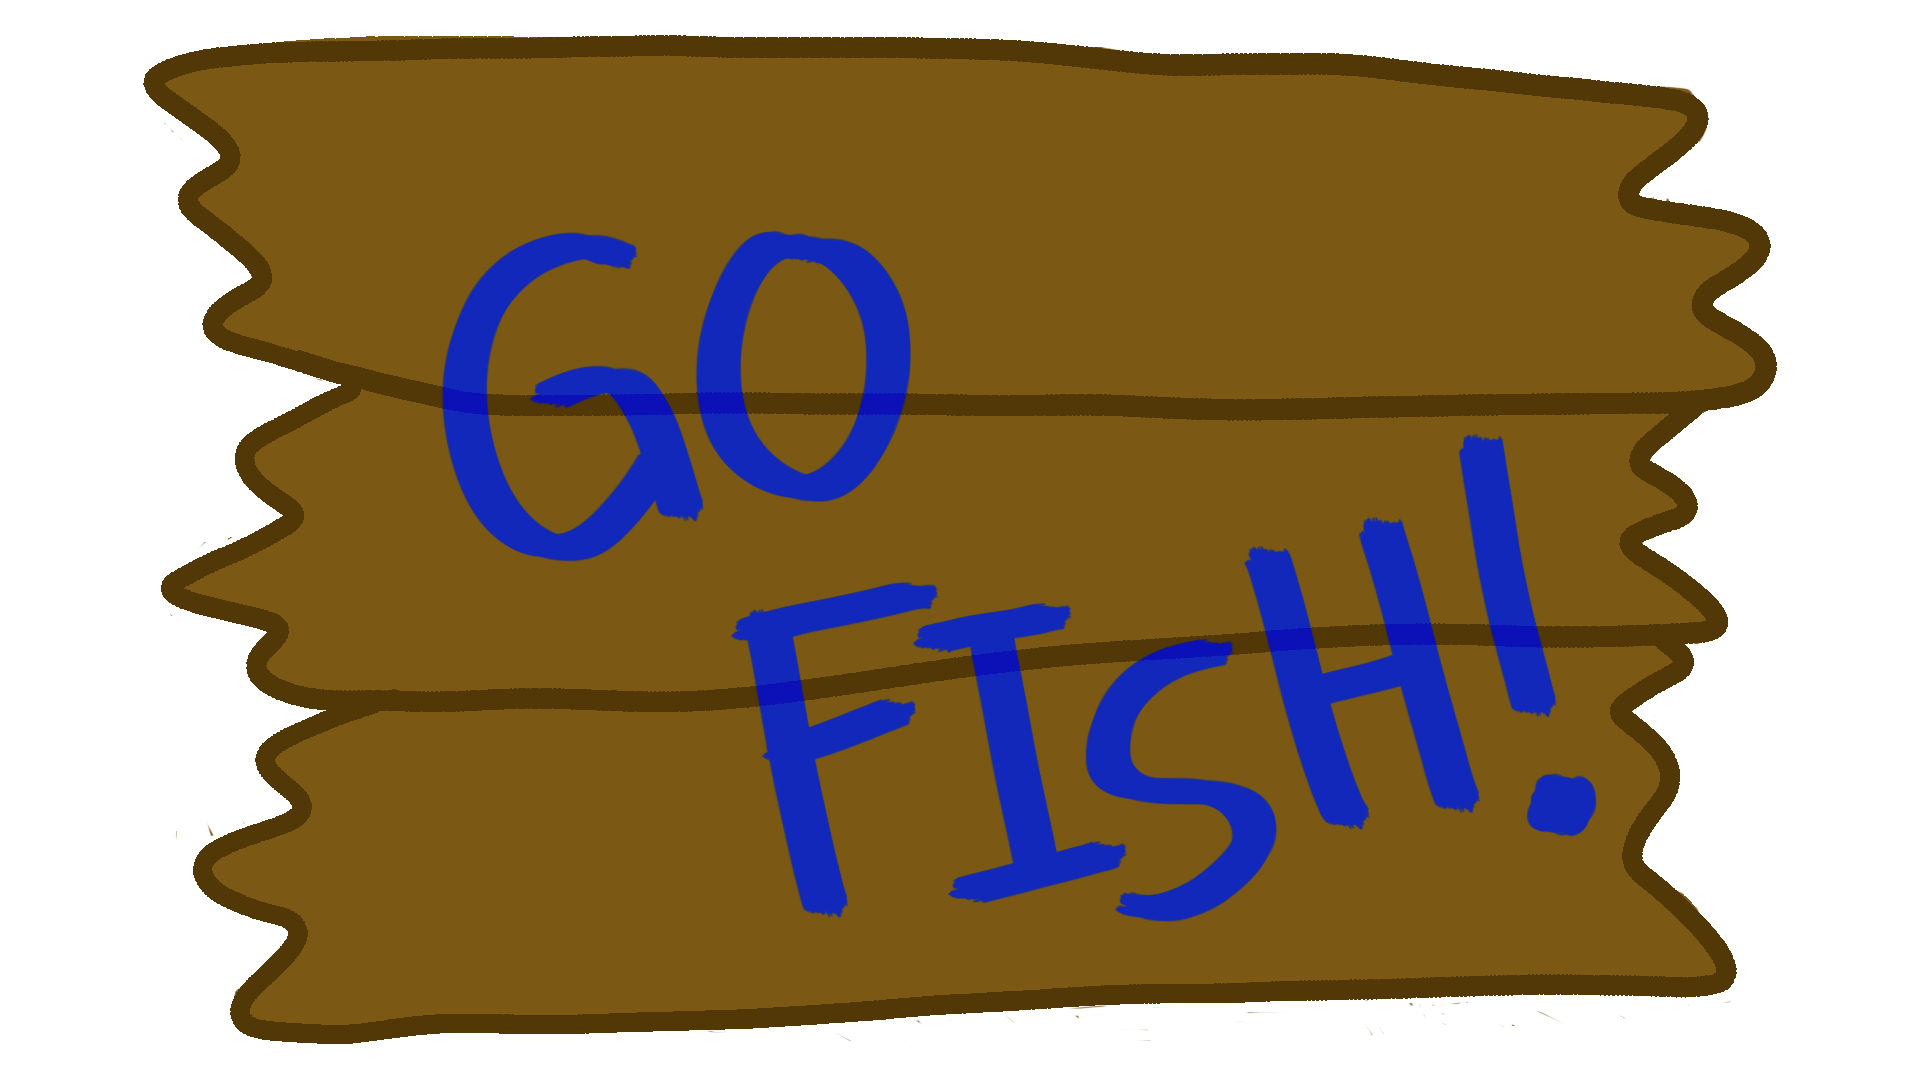 GO
FISH!